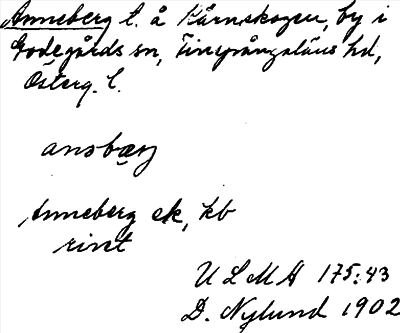 Anneberg l. å Kårnskogen, by i
Godegårds sn, Finspångaläns hd,
Österg. l.
anəbærj
Anneberg ek, kb
rint
ULMA 175:43
D. Nylund 1902